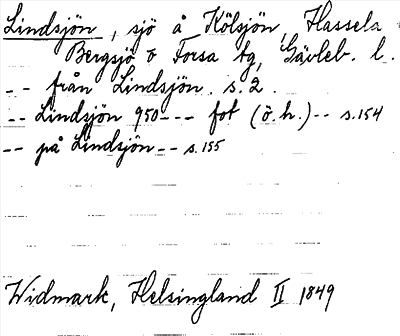 Lindsjön, sjö å Kölsjön, Hassela
Bergsjö o Forsa tg, Gävleb. l.
-- från Lindsjön. s. 2.
-- Lindsjön 950 --- fot (ö.h.) -- s. 154
-- på Lindsjön -- s. 155
Widmark, Helsingland II 1849